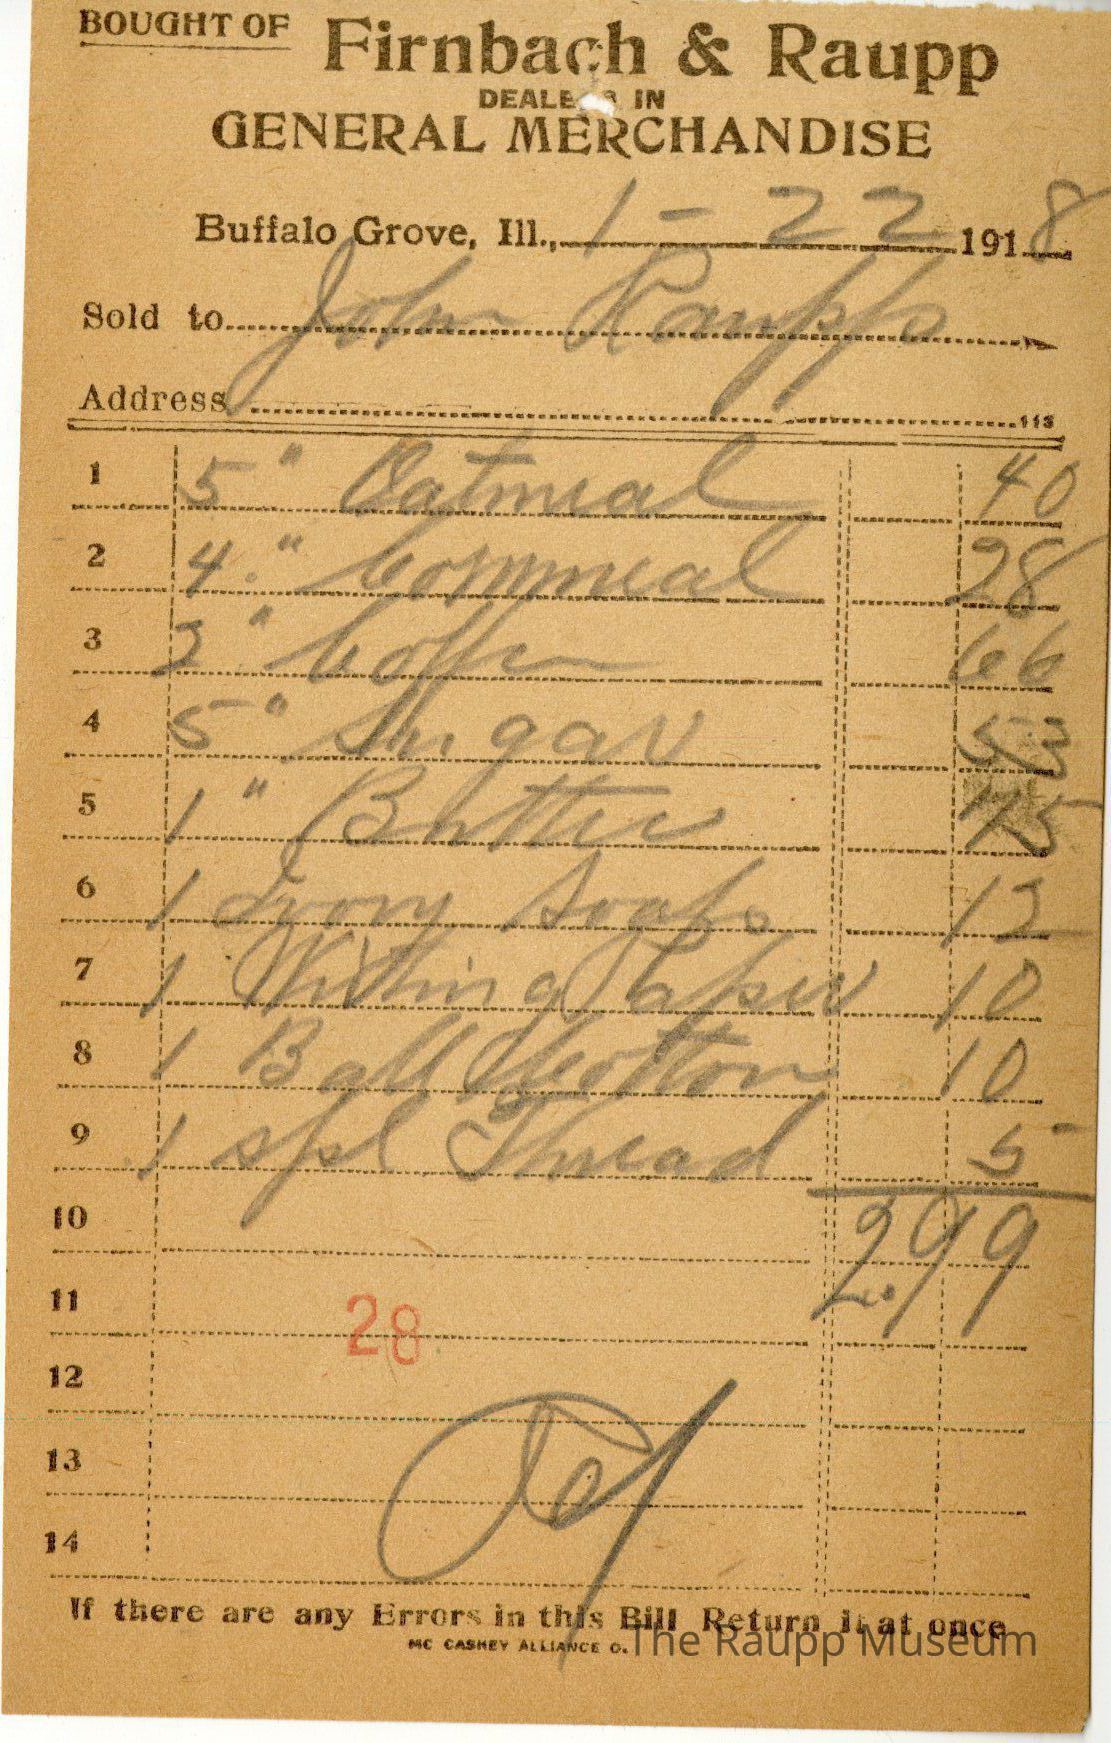 BOUGHT OF Firnbach & Raupp
DEALERS IN
GENERAL MERCHANDISE
Buffalo Grove, Ill., 1-22 1918
Sold to John Raupp
Address
113
1 5 " Oatmeal 40
2 4 " Cornmeal 28
3 2 " Coffee 66
4 5 " Sugar 53
5 1 " Butter 75
6 1 Ivory Soap 12
7 1 Writing Paper 10
8 1 Ball Cotton 10
9 1 spl Thread 5
10 2.99
11 28
12
13
14
If there are any Errors in this Bill Return it at once
MC CASKEY ALLIANCE O.
The Raupp Museum